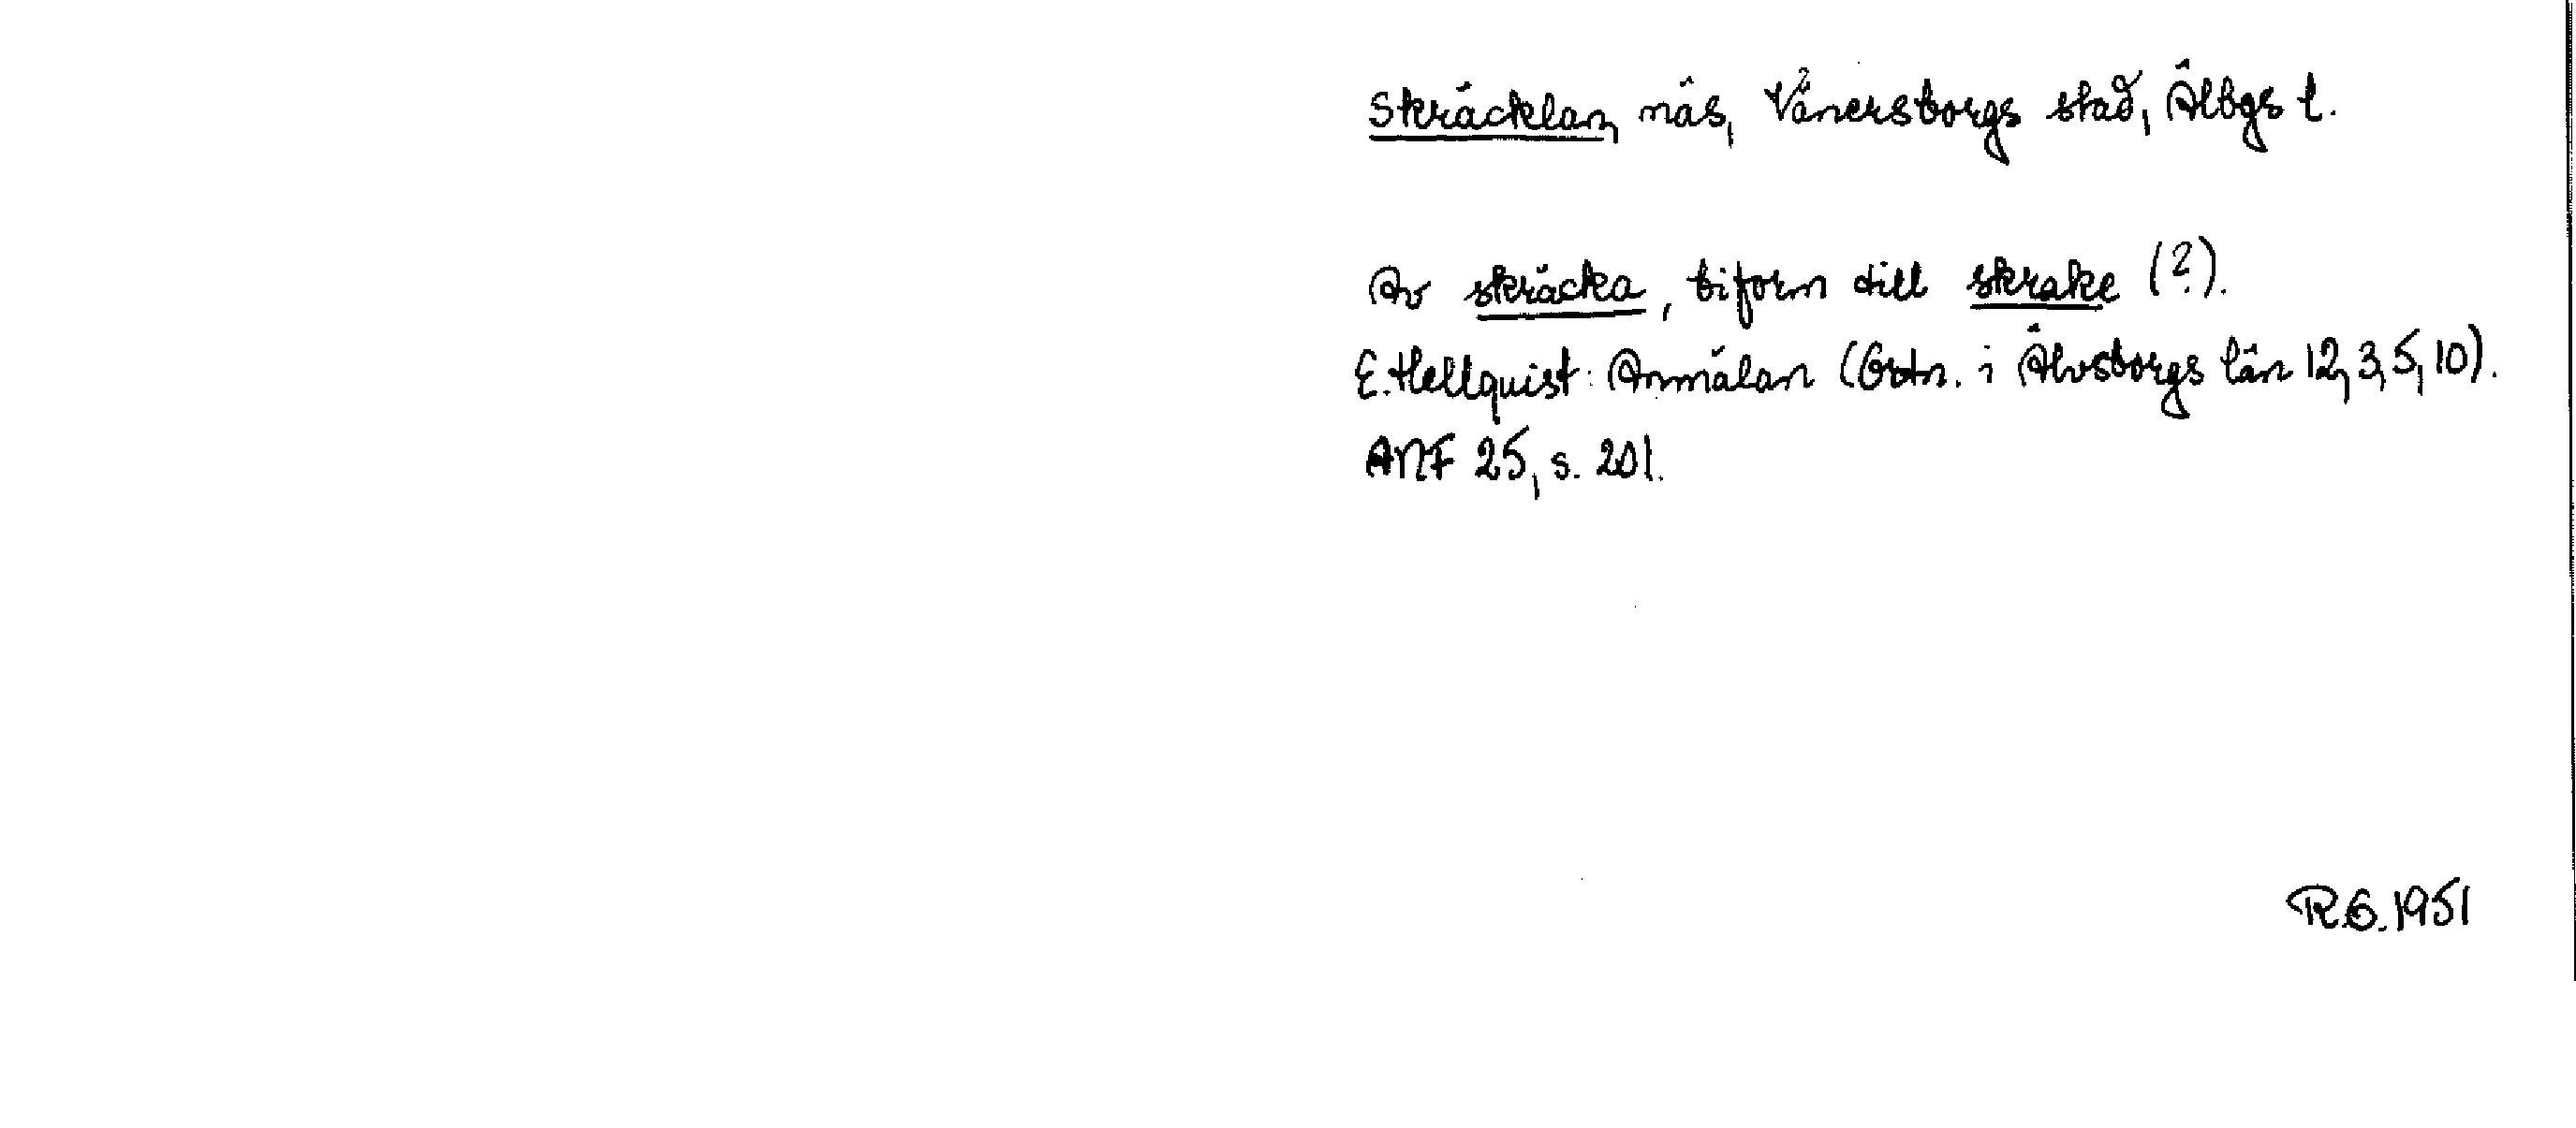 Skräcklan, näs, Vänersborgs stad, Älbgs l.
Av skräcka, biform till skrake (?).
E. Hellquist: Anmälan (Ortn. i Älvsborgs län 12, 3, 5, 10).
ANF 25, s. 201.
R.G. 1951